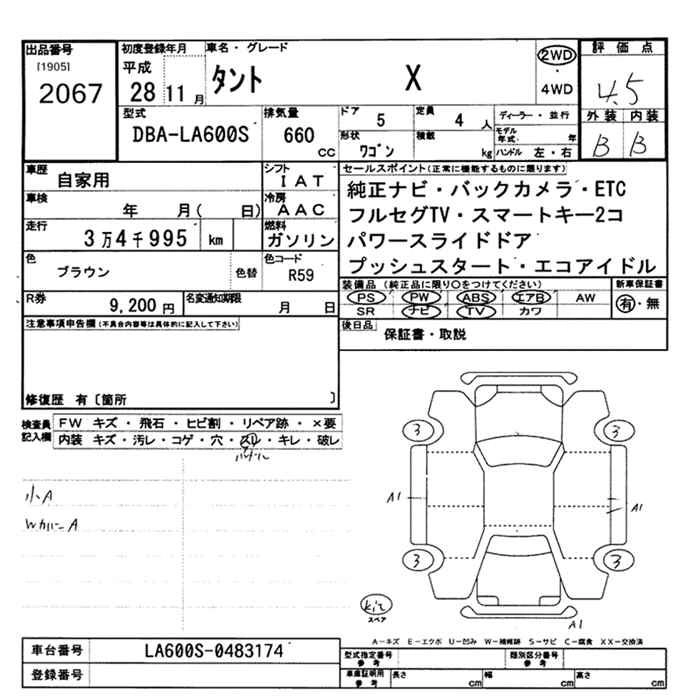 出品番号
[1905]
2067
初度登録年月
平成
28 11 月
車名・グレード
タント X
2WD
4WD
評価点
4.5
外装 内装
B B
型式
DBA-LA600S
排気量
660
cc
ドア
5
定員
4 人
形状
ワゴン
積載
kg
ディーラー・並行
モデル年式. 年
ハンドル 左・右
車歴
自家用
シフト
IAT
車検
年 月( 日)
冷房
AAC
走行
3万4千995 km
燃料
ガソリン
色
ブラウン
色替
色コード
R59
R券
9,200円
名変通知期限
月 日
セールスポイント(正常に機能するものに限ります)
純正ナビ・バックカメラ・ETC
フルセグTV・スマートキー2コ
パワースライドドア
プッシュスタート・エコアイドル
装備品 (純正品に限り○をつけてください)
PS PW ABS エアB AW
SR ナビ TV カワ
新車保証書
有・無
後日品
保証書・取説
注意事項申告欄(不具合内容等は具体的に記入して下さい)
修復歴 有〔箇所 〕
検査員記入欄
FW キズ・飛石・ヒビ割・リペア跡・×要
内装 キズ・汚レ・コゲ・穴・スレ・キレ・破レ
パネル
小A
Wカバー A
3 3
A1 A1
3 3
Kiz
スペア
A1
A-キズ E-エクボ U-凹み W-補修跡 S-サビ C-腐食 XX-交換済
車台番号
LA600S-0483174
登録番号
型式指定番号
参考
類別区分番号
参考
車庫証明用
参考
長さ cm
幅 cm
高さ cm